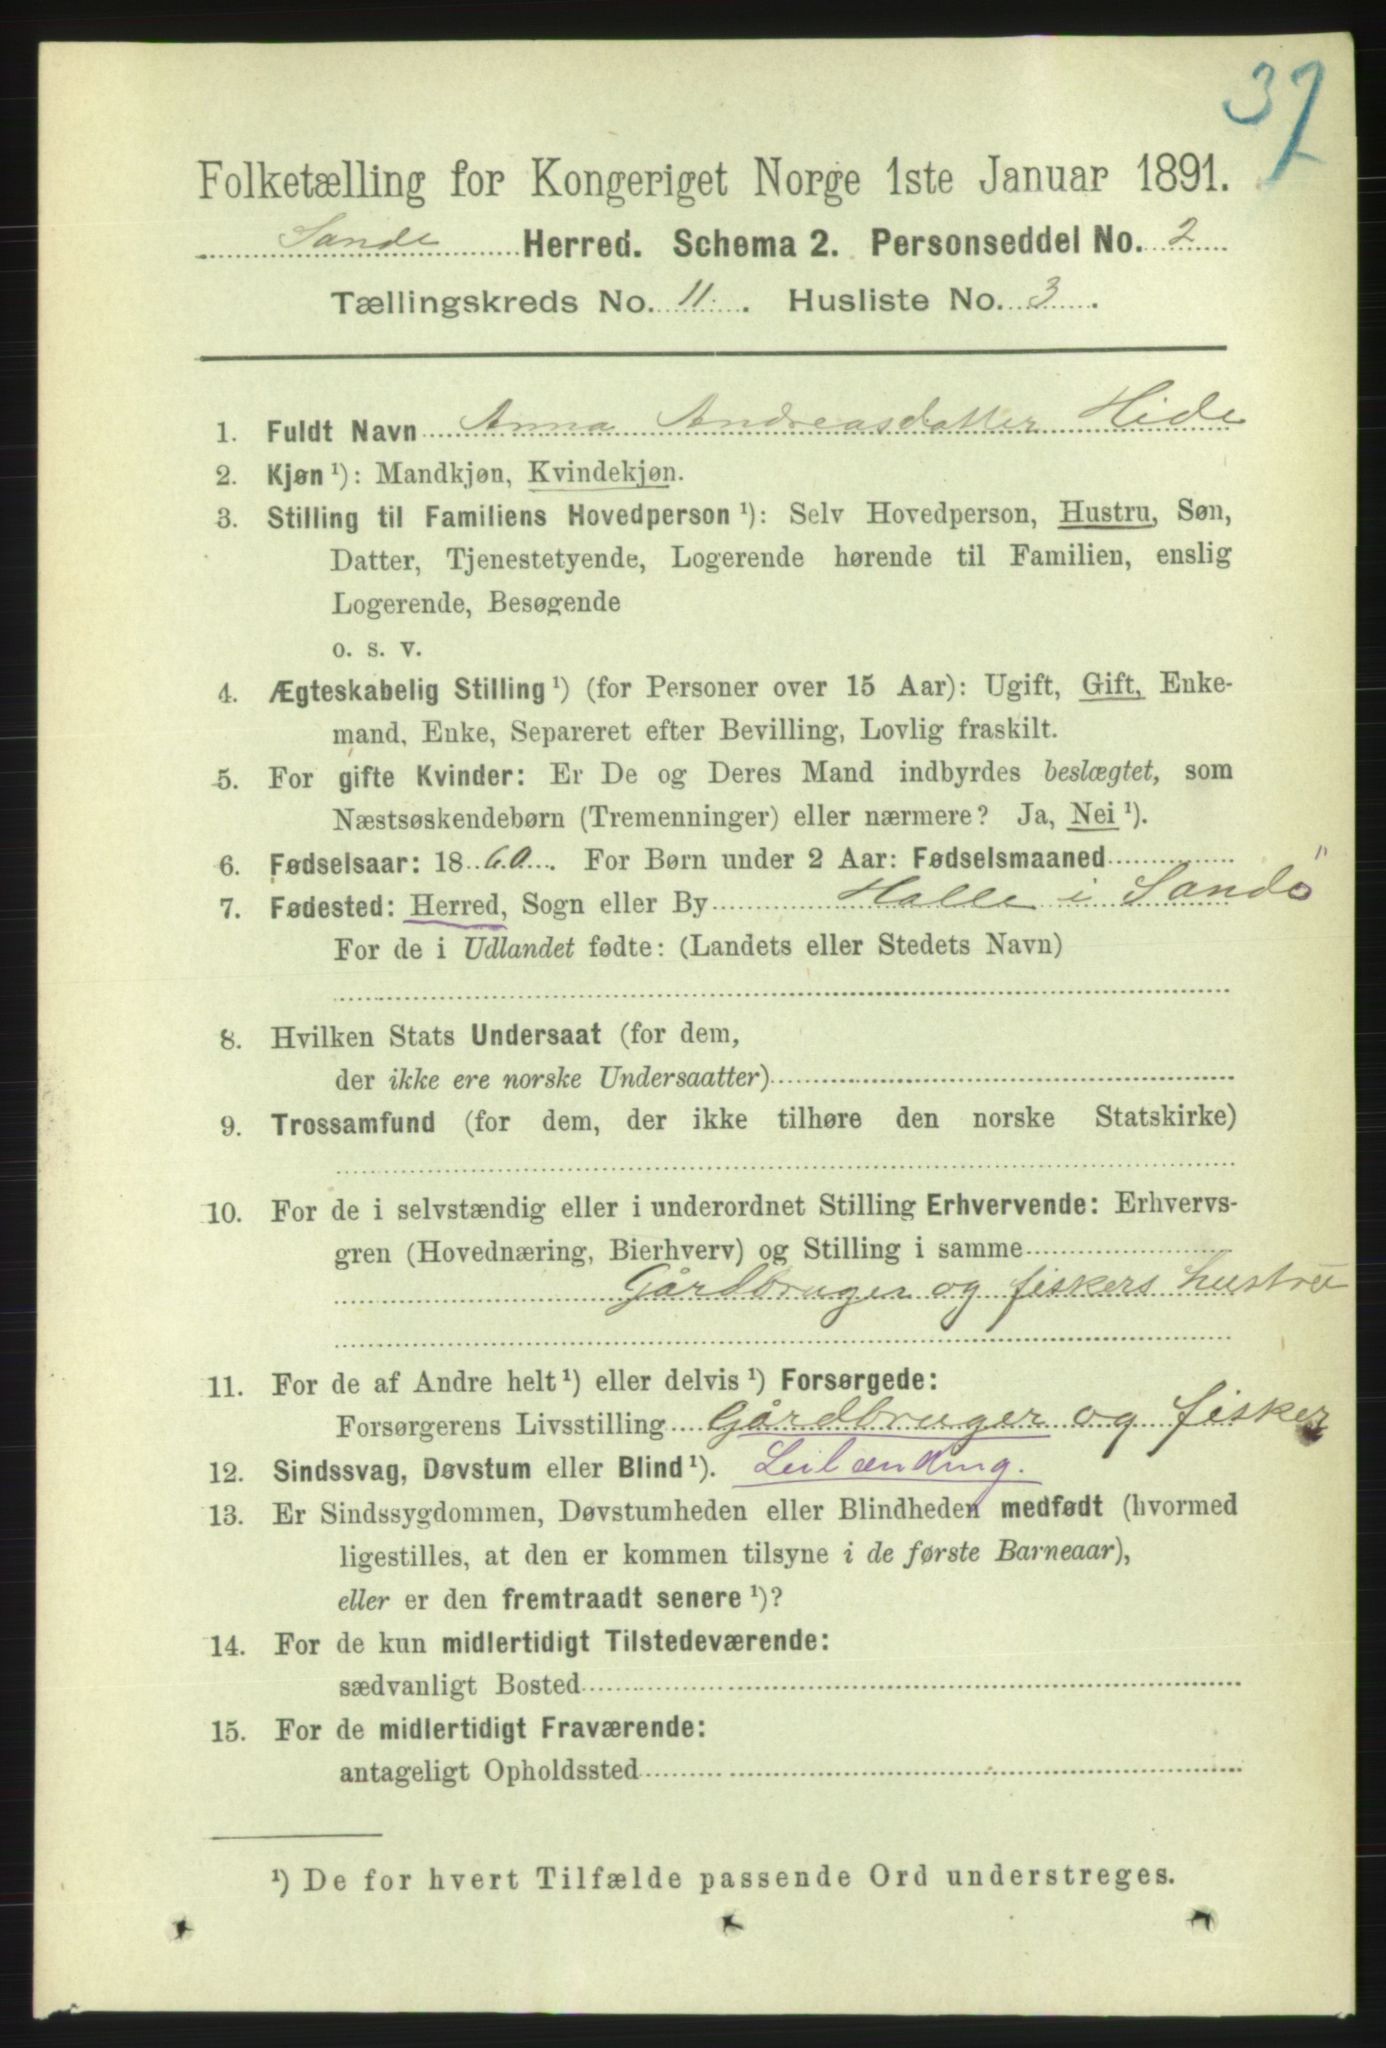 37
Folketælling for Kongeriget Norge 1ste Januar 1891.
Sande Herred. Schema 2. Personseddel No. 2
Tællingskreds No. 11. Husliste No. 3.
1. Fuldt Navn Anna Andreasdatter Hide
2. Kjøn ¹): Mandkjøn, Kvindekjøn.
3. Stilling til Familiens Hovedperson ¹): Selv Hovedperson, Hustru, Søn,
Datter, Tjenestetyende, Logerende hørende til Familien, enslig
Logerende, Besøgende
o. s. v.
4. Ægteskabelig Stilling ¹) (for Personer over 15 Aar): Ugift, Gift, Enke-
mand, Enke, Separeret efter Bevilling, Lovlig fraskilt.
5. For gifte Kvinder: Er De og Deres Mand indbyrdes beslægtet, som
Næstsøskendebørn (Tremenninger) eller nærmere? Ja, Nei ¹).
6. Fødselsaar: 1860. For Børn under 2 Aar: Fødselsmaaned
7. Fødested: Herred, Sogn eller By Halle i Sandö
For de i Udlandet fødte: (Landets eller Stedets Navn)
8. Hvilken Stats Undersaat (for dem,
der ikke ere norske Undersaatter)
9. Trossamfund (for dem, der ikke tilhøre den norske Statskirke)
10. For de i selvstændig eller i underordnet Stilling Erhvervende: Erhvervs-
gren (Hovednæring, Bierhverv) og Stilling i samme
Gårdbruger og fiskers hustru
11. For de af Andre helt ¹) eller delvis ¹) Forsørgede:
Forsørgerens Livsstilling Gårdbruger og fisker
12. Sindssvag, Døvstum eller Blind ¹). Leilænding.
13. Er Sindssygdommen, Døvstumheden eller Blindheden medfødt (hvormed
ligestilles, at den er kommen tilsyne i de første Barneaar),
eller er den fremtraadt senere ¹)?
14. For de kun midlertidigt Tilstedeværende:
sædvanligt Bosted
15. For de midlertidigt Fraværende:
antageligt Opholdssted
¹) De for hvert Tilfælde passende Ord understreges.